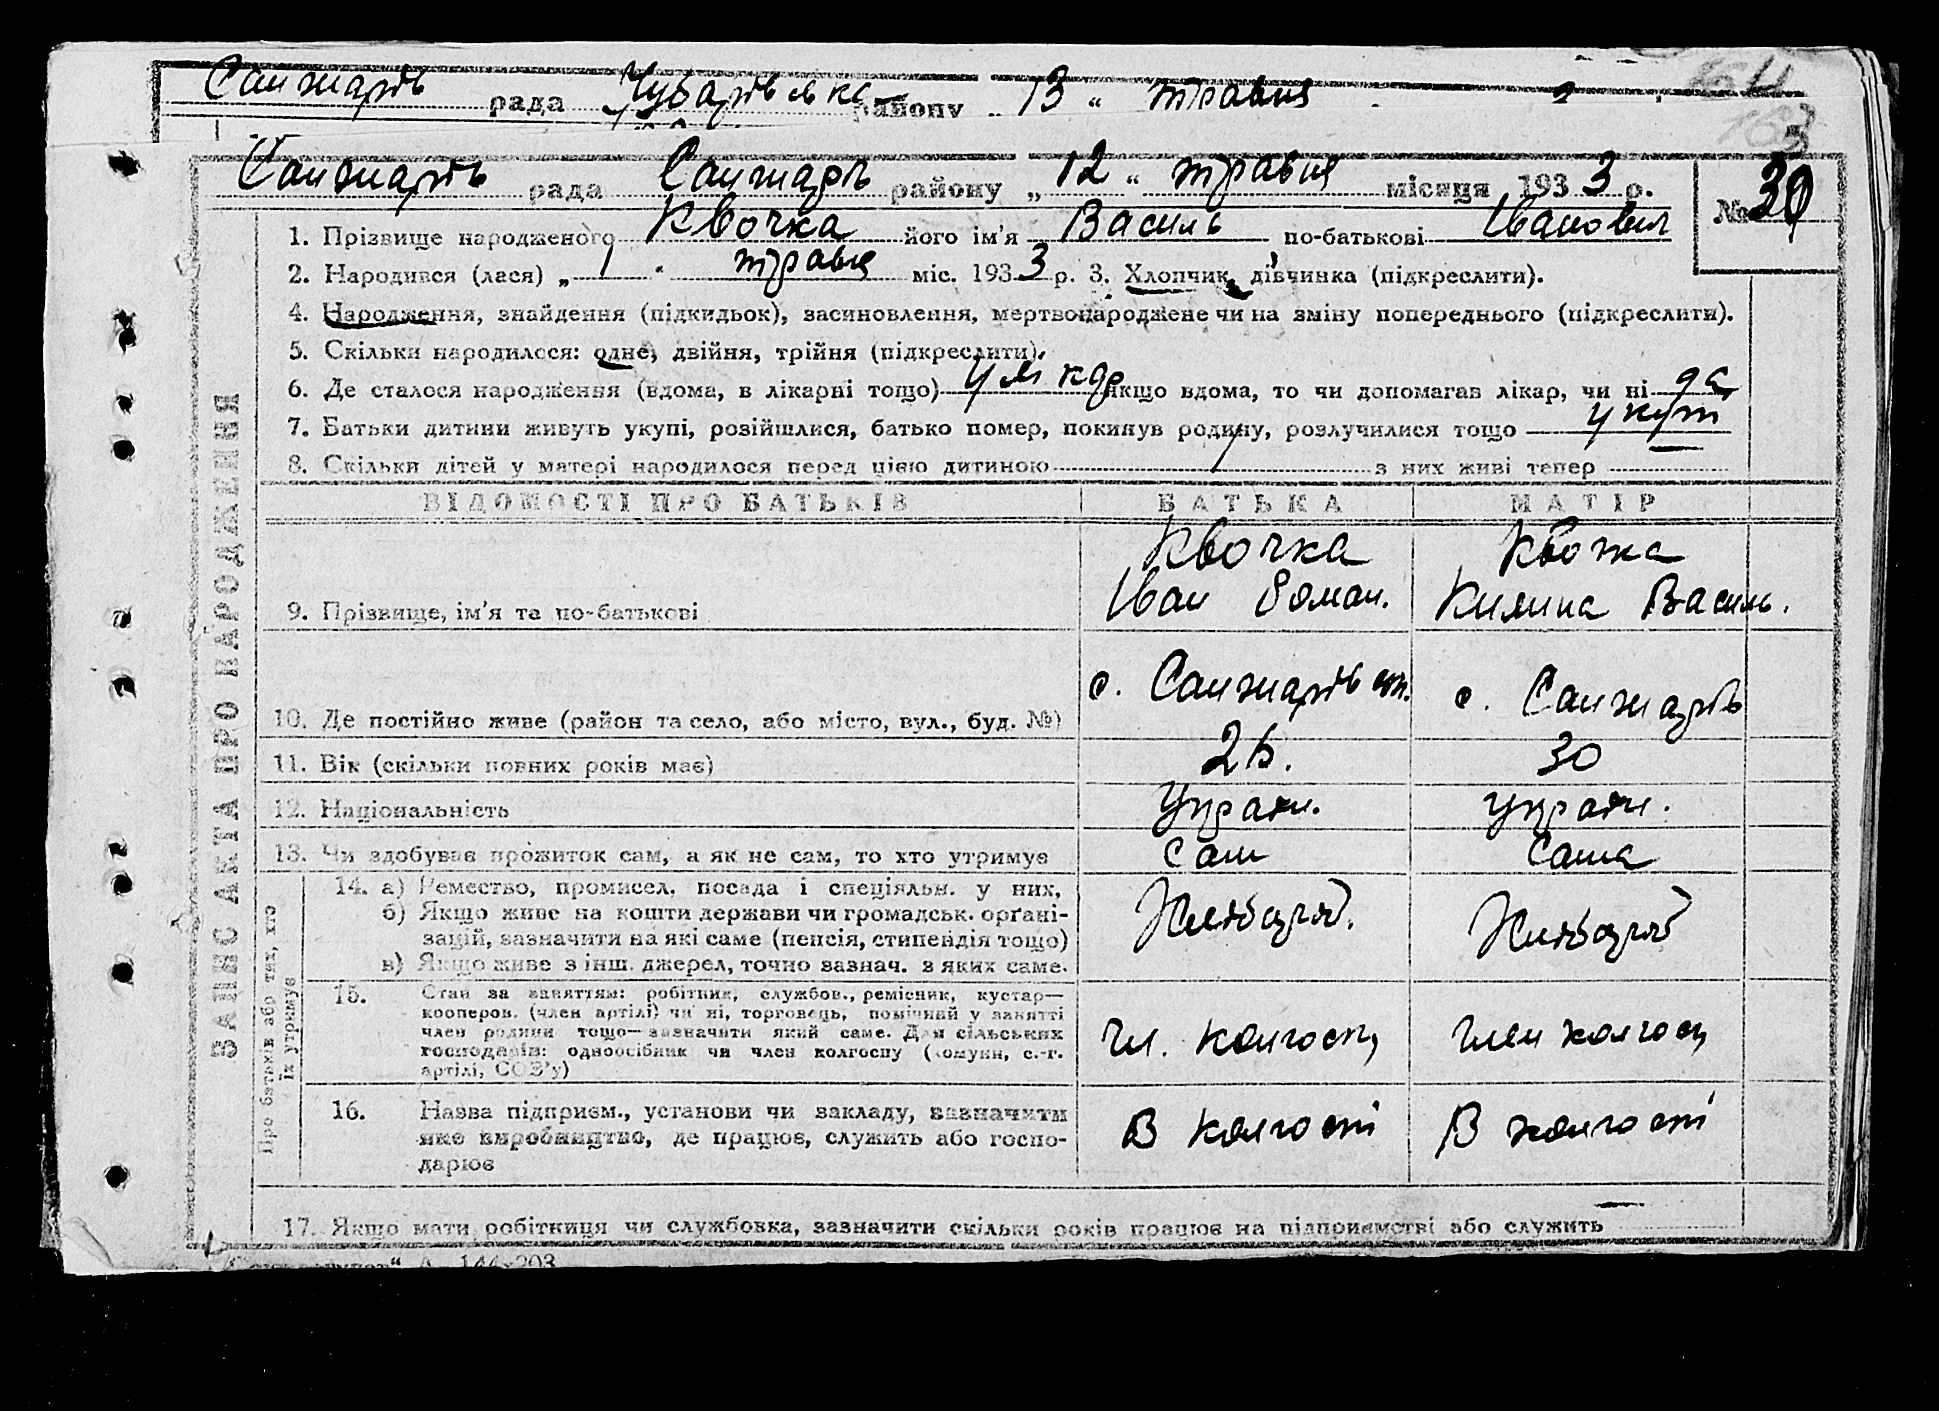 Санжарів рада Чубарівська району „ 13 “ травня
Санжарів рада Санжарів району „ 12 “ травня місяця 193 3 р. № 30
ЗАПИС АКТА ПРО НАРОДЖЕННЯ
1. Прізвище народженого Квочка його ім'я Василь по-батькові Іванович
2. Народився (лася) „ 1 “ травня міс. 193 3 р. 3. Хлопчик, дівчинка (підкреслити).
4. Народження, знайдення (підкидьок), засиновлення, мертвонароджене чи на зміну попереднього (підкреслити).
5. Скільки народилося: одне, двійня, трійня (підкреслити).
6. Де сталося народження (вдома, в лікарні тощо) якщо вдома, то чи допомагав лікар, чи ні
7. Батьки дитини живуть укупі, розійшлися, батько помер, покинув родину, розлучилися тощо укупі
8. Скільки дітей у матері народилося перед цією дитиною з них живі тепер
ВІДОМОСТІ ПРО БАТЬКІВ БАТЬКА МАТІР
Квочка Квочка
9. Прізвище, ім'я та по-батькові Іван Роман. Килина Василь.
10. Де постійно живе (район та село, або місто, вул., буд. №) с. Санжарівка с. Санжарів
11. Вік (скільки повних років має) 26. 30
12. Національність Україн. україн.
13. Чи здобував прожиток сам, а як не сам, то хто утримує сам сама
Про батьків або тих, хто їх утримує
14. а) Ремество, промисел, посада і спеціяльн. у них,
б) Якщо живе на кошти держави чи громадськ. орґані-
зацій, зазначити на які саме (пенсія, стипендія тощо) Хлібороб. Хлібороб
в) Якщо живе з інш. джерел, точно зазнач. з яких саме.
15. Стан за заняттям: робітник, службов., ремісник, кустар—
кооперов. (член артілі) чи ні, торговець, помічний у занятті
член родини тощо—зазначити який саме. Для сільських
господарів: одноосібник чи член колгоспу (комуни, с.-г. чл. колгоспу член колгоспу
артілі, СОЗ'у)
16. Назва підприєм., установи чи закладу, зазначити
яке виробництво, де працює, служить або госпо- В колгоспі В колгоспі
дарює
17. Якщо мати робітниця чи службовка, зазначити скільки років працює на підприємстві або служить —